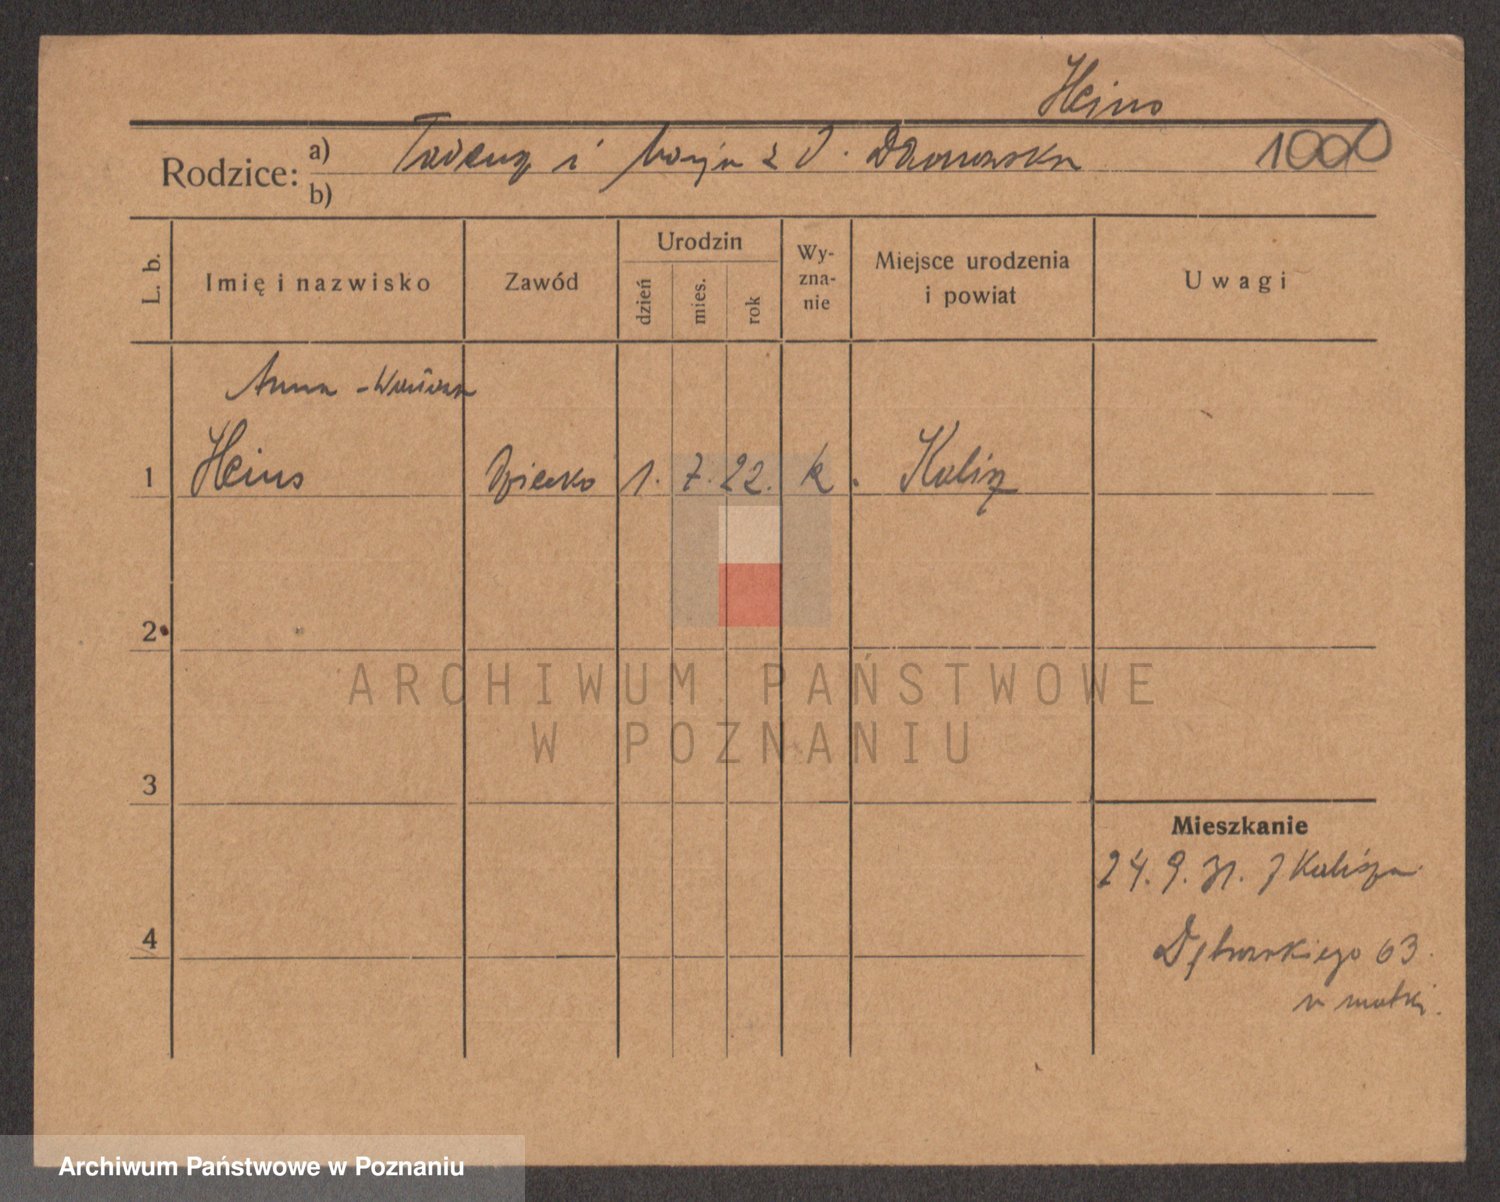 Heins
Rodzice: a) Tadeusz i Marja z d.
1000
b)
L. b.
Imię i nazwisko
Zawód
Urodzin
dzień
mies.
rok
Wy-
zna-
nie
Miejsce urodzenia
i powiat
Uwagi
Anna -
1 Heins dziecko 1. 7. 22. k. Kalisz
2
ARCHIWUM PAŃSTWOWE
W POZNANIU
3
Mieszkanie
24. 9. 31. z Kalisza
4
Dąbrowskiego 63.
u matki.
Archiwum Państwowe w Poznaniu